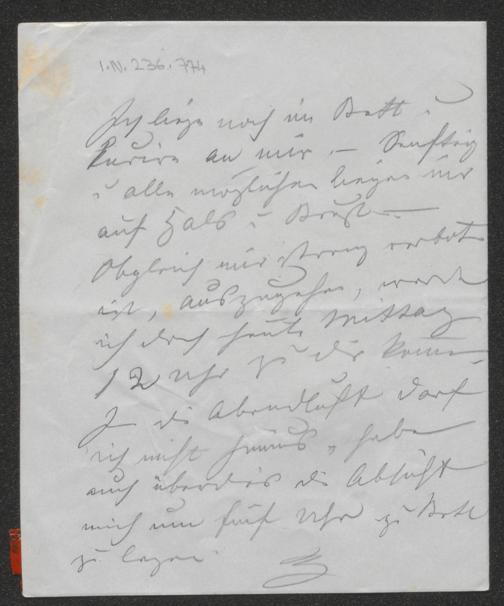 I.N. 236.774
Ich liege noch im Bett u
kurire an mir. – Senfteig
u alle möglichen liegen mir
auf Hals u Brust –
Obgleich mir streng verboten
ist, auszugehen, werde
ich doch heute Mittag
12 Uhr zu dir kommen
In die Abendluft darf
ich nicht hinaus, habe
auch überdies die Absicht
mich um fünf Uhr zu Bett
zu legen.